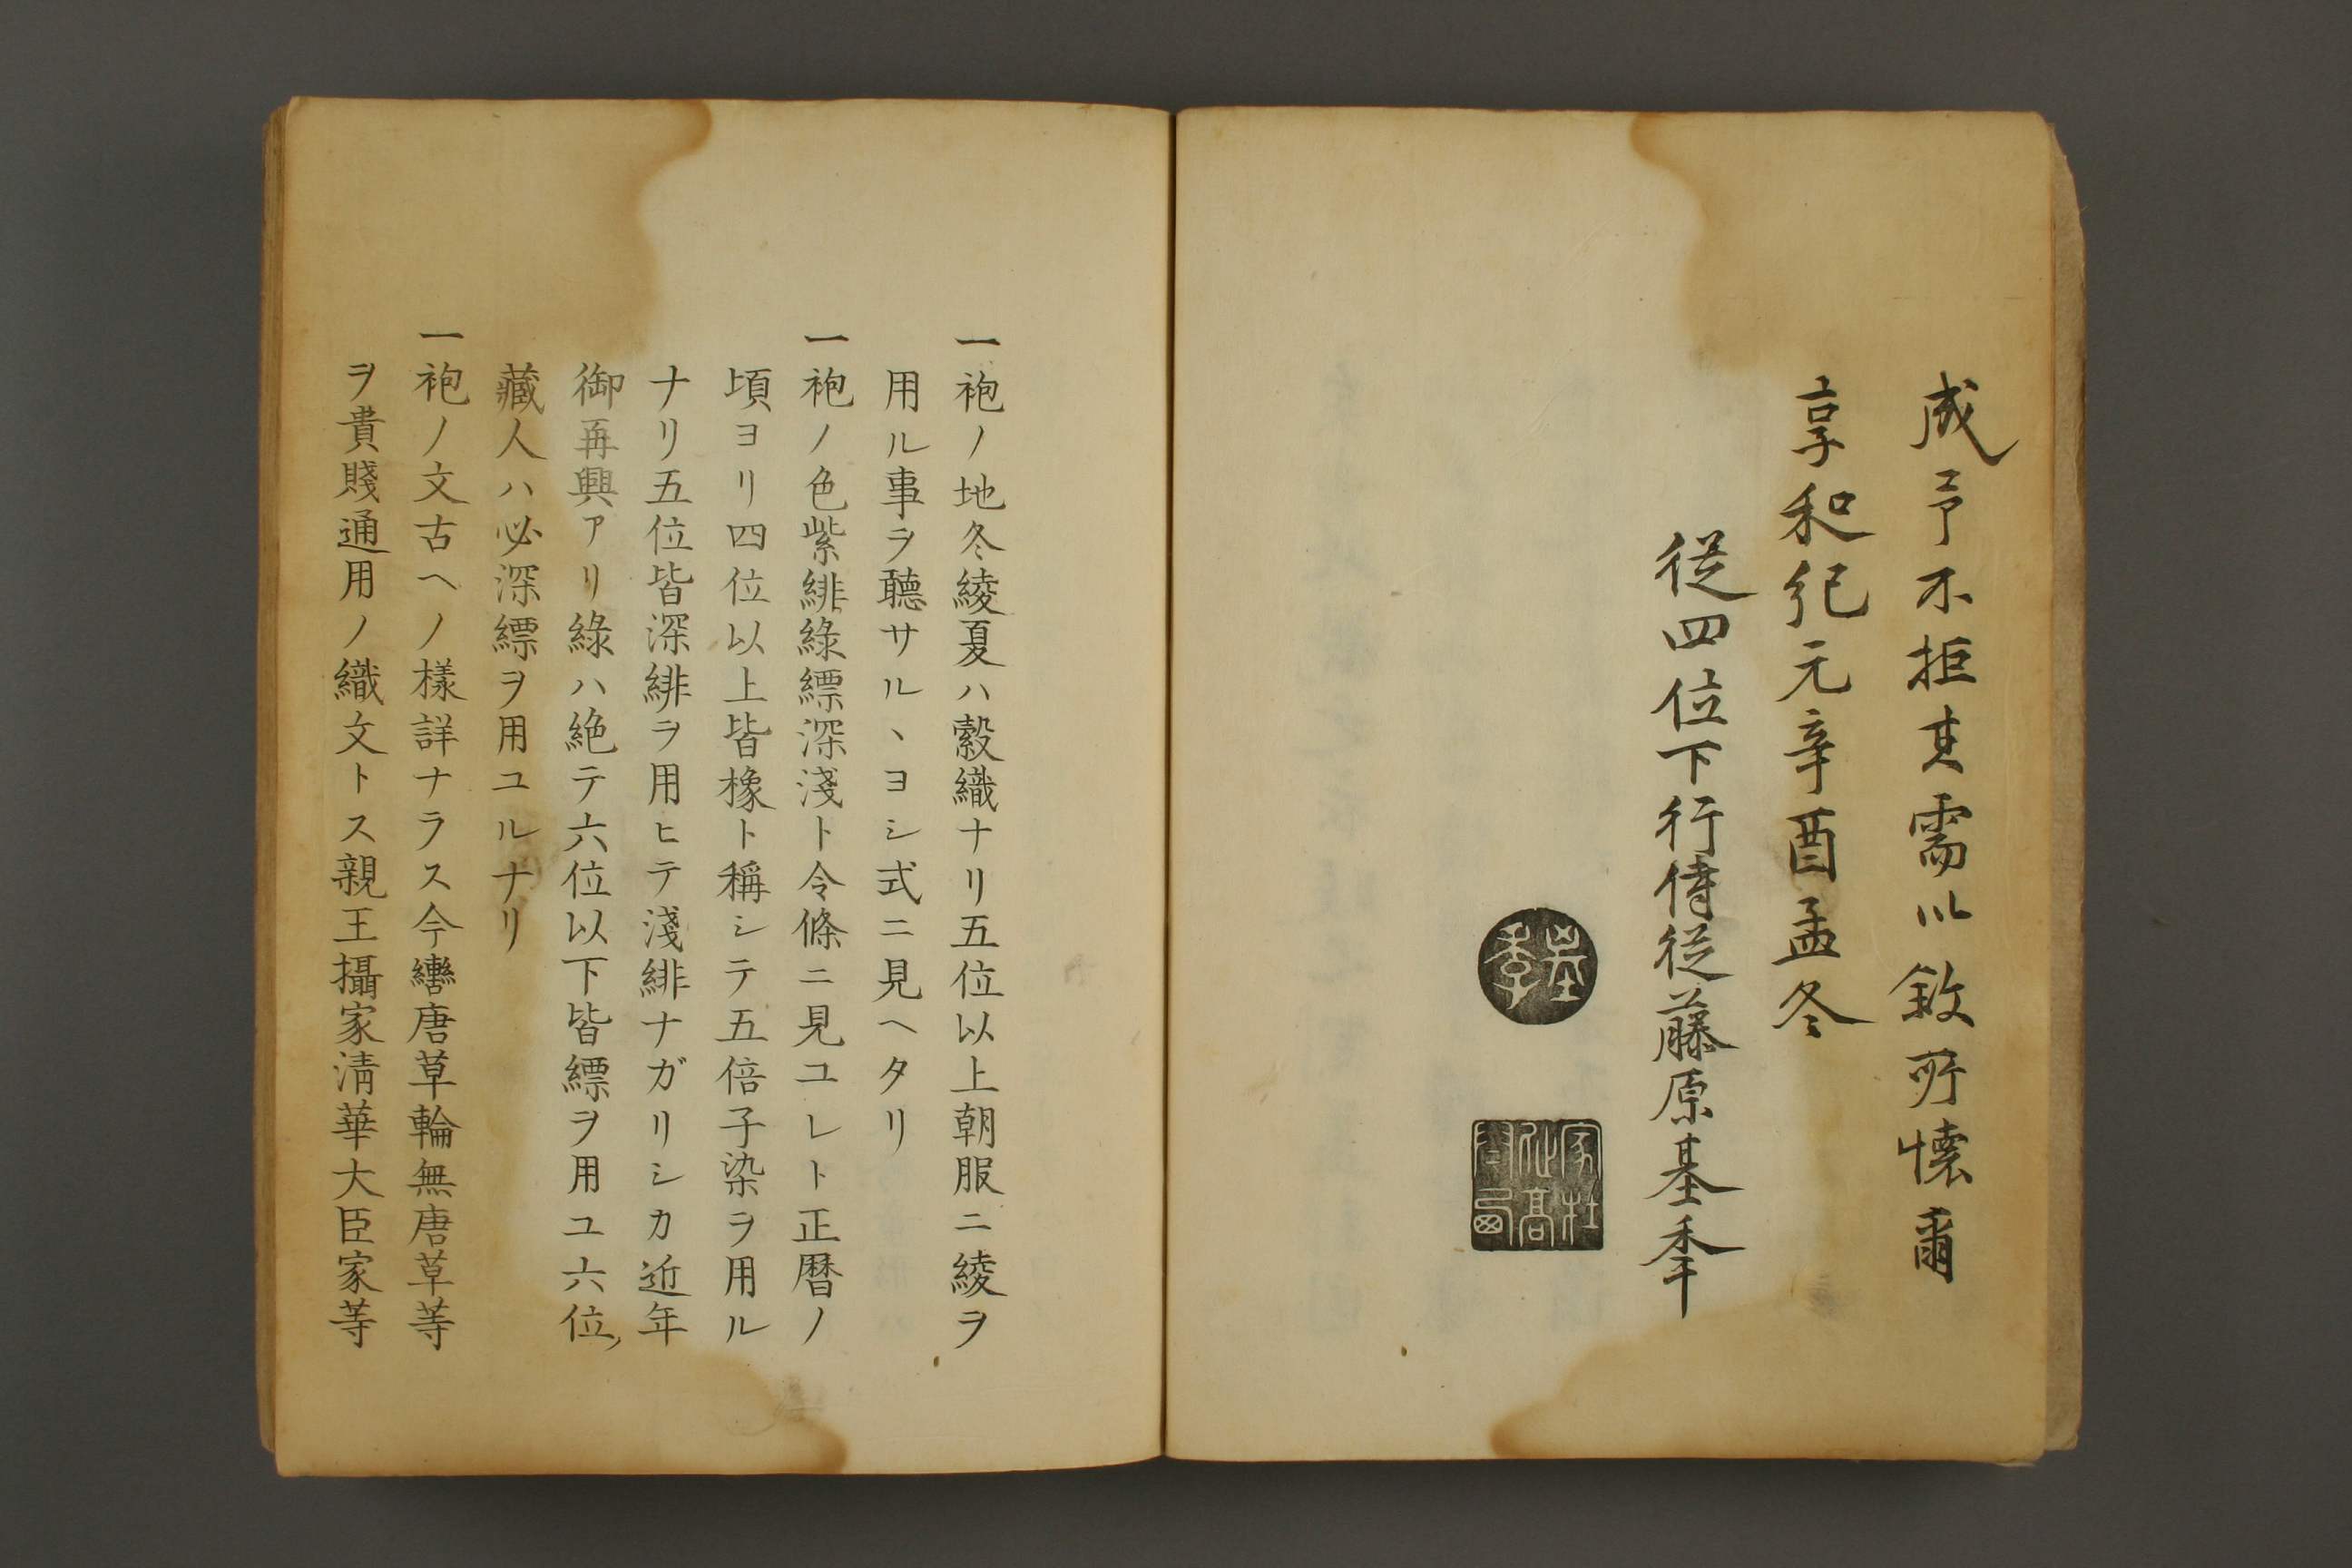 成予不拒其需以敘所懷爾
享和紀元辛酉孟冬
從四位下行侍從藤原基季
基季
一袍ノ地冬綾夏ハ縠織ナリ五位以上朝服ニ綾ヲ
用ル事ヲ聽サルヽヨシ式ニ見ヘタリ
一袍ノ色紫緋綠縹深淺ト令條ニ見ユレト正曆ノ
頃ヨリ四位以上皆橡ト稱シテ五倍子染ヲ用ル
ナリ五位皆深緋ヲ用ヒテ淺緋ナガリシカ近年
御再興アリ綠ハ絶テ六位以下皆縹ヲ用ユ六位
藏人ハ必深縹ヲ用ユルナリ
一袍ノ文古ヘノ樣詳ナラス今轡唐草輪無唐草等
ヲ貴賤通用ノ織文トス親王攝家淸華大臣家等